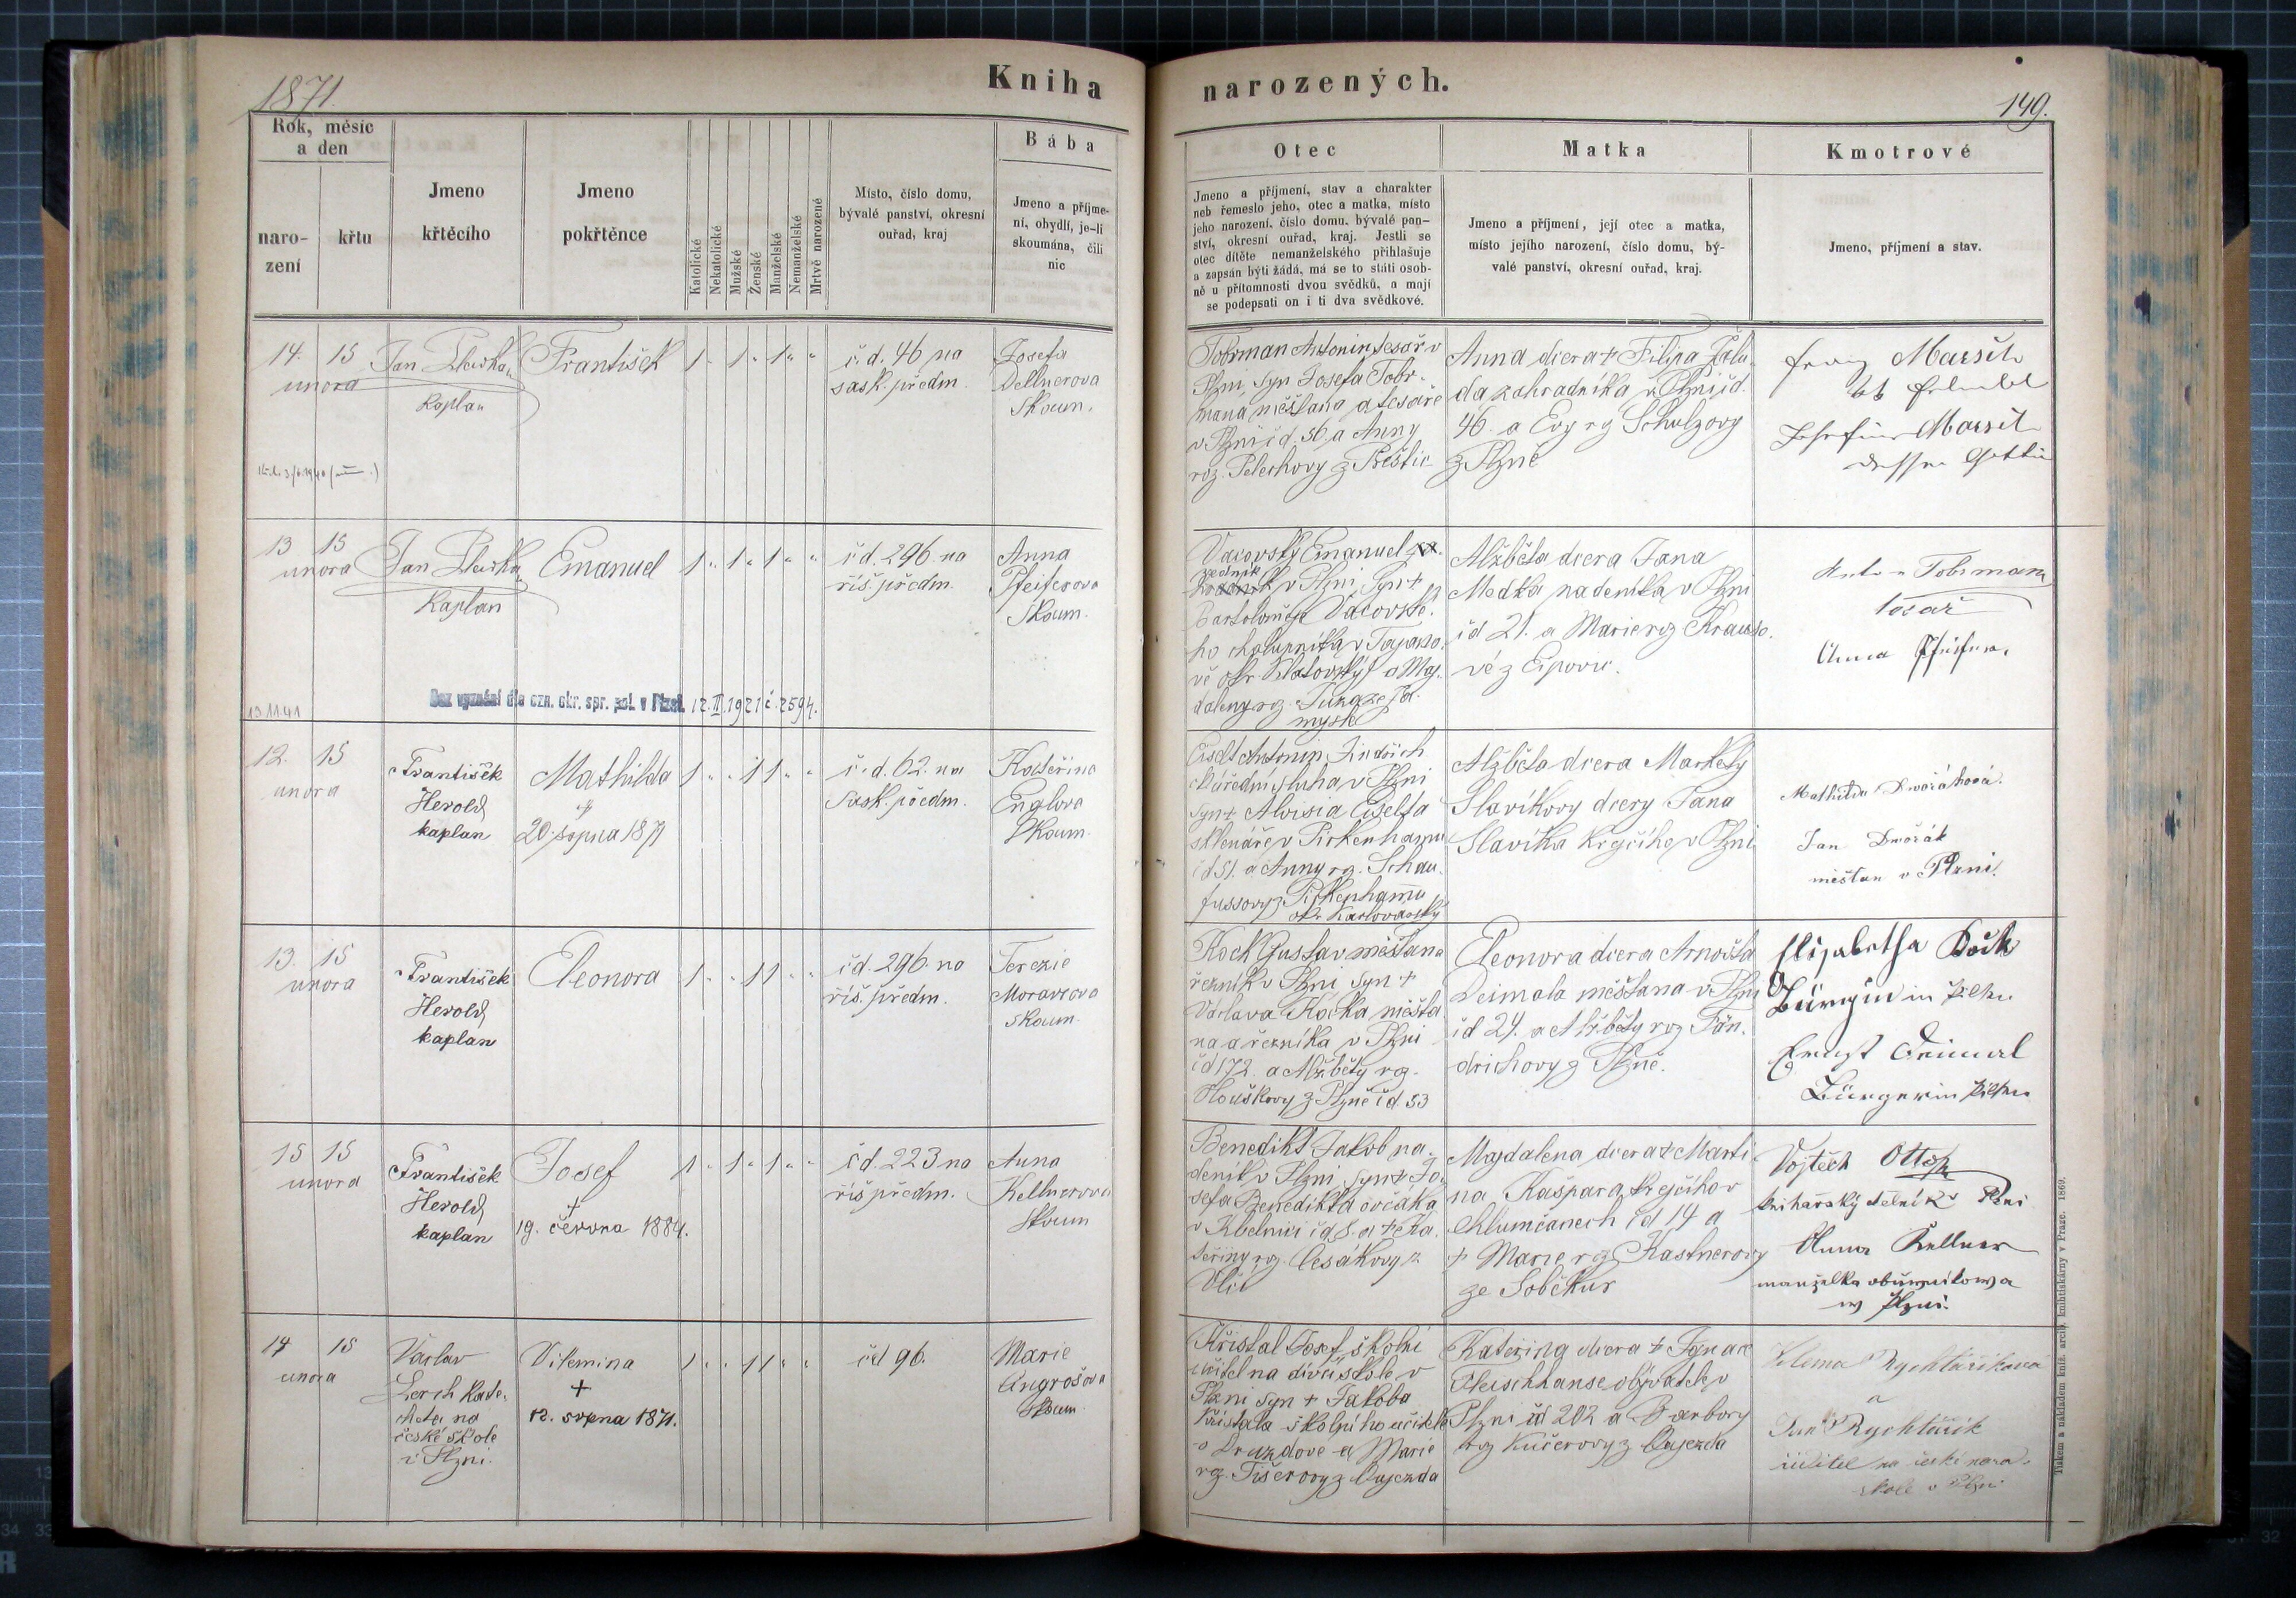 1871.
Kniha
narozených.
149.
Rok, měsíc
a den
naro-
zení
křtu
Jmeno
křtěcího
Jmeno
pokřtěnce
Katolické
Nekatolické
Mužské
Ženské
Manželské
Nemanželské
Mrtvě narozené
Místo, číslo domu,
bývalé panství, okresní
ouřad, kraj
Bába
Jmeno a příjme-
ní, obydlí, je-li
skoumána, čili
nic
Otec
Jmeno a příjmení, stav a charakter
neb řemeslo jeho, otec a matka, místo
jeho narození, číslo domu, bývalé pan-
ství, okresní ouřad, kraj. Jestli se
otec dítěte nemanželského přihlašuje
a zapsán býti žádá, má se to státi osob-
ně u přítomnosti dvou svědků, a mají
se podepsati on i ti dva svědkové.
Matka
Jmeno a příjmení, její otec a matka,
místo jejího narození, číslo domu, bý-
valé panství, okresní ouřad, kraj.
Kmotrové
Jmeno, příjmení a stav.
14. 15
unora
Jan
Kaplan
František
1 " 1 " 1 " "
č. d. 46 na
sask. předm.
Josefa
Dellnerova
Skoum.
Tobrman Antonin tesař v
Plzni syn Josefa Tobr-
mana měšťana a tesaře
v Plzni č d. 56. a Anny
roz. Pelechovy z Přeštic
Anna dcera + Filipa
da zahradníka v Plzni č d.
46. a Evy rz Schulzovy
z Plzně
Franz
Josefine
dessen Gattin
13 15
unora
Jan
Kaplan
Emanuel
1 " 1 " 1 " "
č d. 296 na
říš. předm.
Anna
Pfeiferova
Skoum.
Vacovský Emanuel
zedník
v Plzni, Syn +
Bartoloměje Vacovské-
ho chalupníka v Tajano-
vě okr. Klatovský a Maj-
daleny rz.
mysle
Alžběta dcera Jana
Medka nadeníka v Plzni
čd 21. a Marie rz Krauso-
vé z Ejpovic.
Anton Tobrman
tesař
Anna Pfeifer
13.11.41
Bez vyznání dle ozn. okr. spr. pol. v Plzni. 12. II. 1921 č. 2594.
12. 15
unora
František
Herold
kaplan
Mathilda
+
20. srpna 1871
1 " " 1 1 " "
č. d. 62. na
Sask. předm.
Kateřina
Englova
Skoum.
Eiselt Antonin Jindřich
úřední sluha v Plzni
syn + Aloisia Eiselta
sklenáře v Pirkenhamu
čd 51. a Anny rz. Schau-
fussovy z Pirkenhamu
okr Karlovarský
Alžběta dcera Markety
Slavíkovy dcery Jana
Slavíka krejčího v Plzni
Mathilda Dvořáková.
Jan Dvořák
měšťan v Plzni.
13. 15
unora
František
Herold
kaplan
Eleonora
1 " " 1 1 " "
čd. 296. na
říš. předm.
Terezie
Moravcova
Skoum.
Kock Gustav měšťan a
řezník v Plzni syn +
Václava Kocka měšťa-
na a řezníka v Plzni
čd 172. a Alžběty rz.
Houškovy z Plzně čd. 53
Eleonora dcera Arnošta
Deimala měšťana v Plzni
čd 24. a Alžběty roz Fän-
drichovy z Plzně.
Elisabetha Kock
Bürgerin in Pilsen
Ernst Deimal
Bürger in Pilsen
15 15
unora
František
Herold
kaplan
Josef
+
19. června 1884.
1 " 1 " 1 " "
čd. 223 na
říš předm.
Anna
Kellnerova
Skoum
Benedikt Jakob na-
deník v Plzni, syn + Jo-
sefa Benedikta ovčáka
v Kbelnici čd 8. a + Ka-
teřiny rz. Cesákovy z
Vlčí
Majdalena dcera + Marti-
na Kašpara krejčího v
Chlumčanech čd 14 a
+ Marie rz Kastnerovy
ze Soběkur
Vojtěch Otto
knihařský dělník v Plzni
Anna Kellner
manželka obuwníkowa
w Plzni.
14 15
unora
Václav
Lerch kate-
cheta na
české škole
v Plzni.
Vilemina
+
12. srpna 1871.
1 " " 1 1 " "
čd 96.
Marie
Angrošova
Skoum
Křistal Josef školní
učitel na dívčí škole v
Plzni syn + Jakoba
Křistala školního učitele
v Druzdově a Marie
rz. Tišerovy z Oujezda
Kateřina dcera + Ignace
Fleischhanse objvatele v
Plzni čd 202 a Barbory
rz Kučerovy z Oujezda
Vilema Rychtaříková
a
Jan Rychtařík
učitel na české národ.
škole v Plzni
Tiskem a nákladem kníž. arcib. knihtiskárny v Praze. 1869.